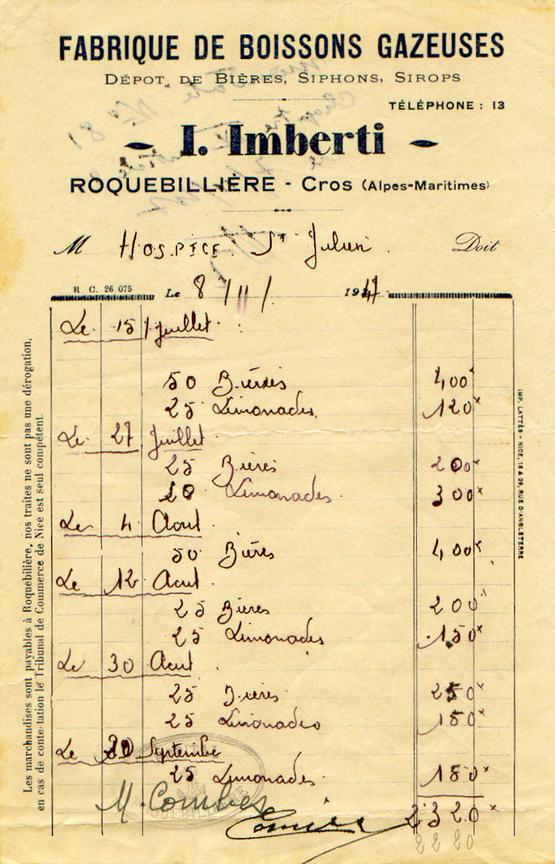 FABRIQUE DE BOISSONS GAZEUSES
DÉPOT DE BIÈRES, SIPHONS, SIROPS
TÉLÉPHONE : 13
I. Imberti
ROQUEBILLIÈRE - Cros (Alpes-Maritimes)
M HOSPICE St Julien Doit
R C. 26 075
Le 8/11/ 1947
Le 15 Juillet
50 Bières 400
25 Limonades 120
Le 27 Juillet
25 Bières 200
Limonades 300
Le 4 Aout
50 Bières 400
Le 12 Aout
25 Bières 200
25 Limonades 150
Le 30 Aout
25 Bières 250
25 Limonades 150
Le Septembre
25 Limonades 150
M. Combes 2320
2220
Les marchandises sont payables à Roquebilière, nos traites ne sont pas une dérogation,
en cas de conte-tation le Tribunal de Commerce de Nice est seul compétent.
IMP. LATTÈS - NICE, RUE D'ANGLETERRE